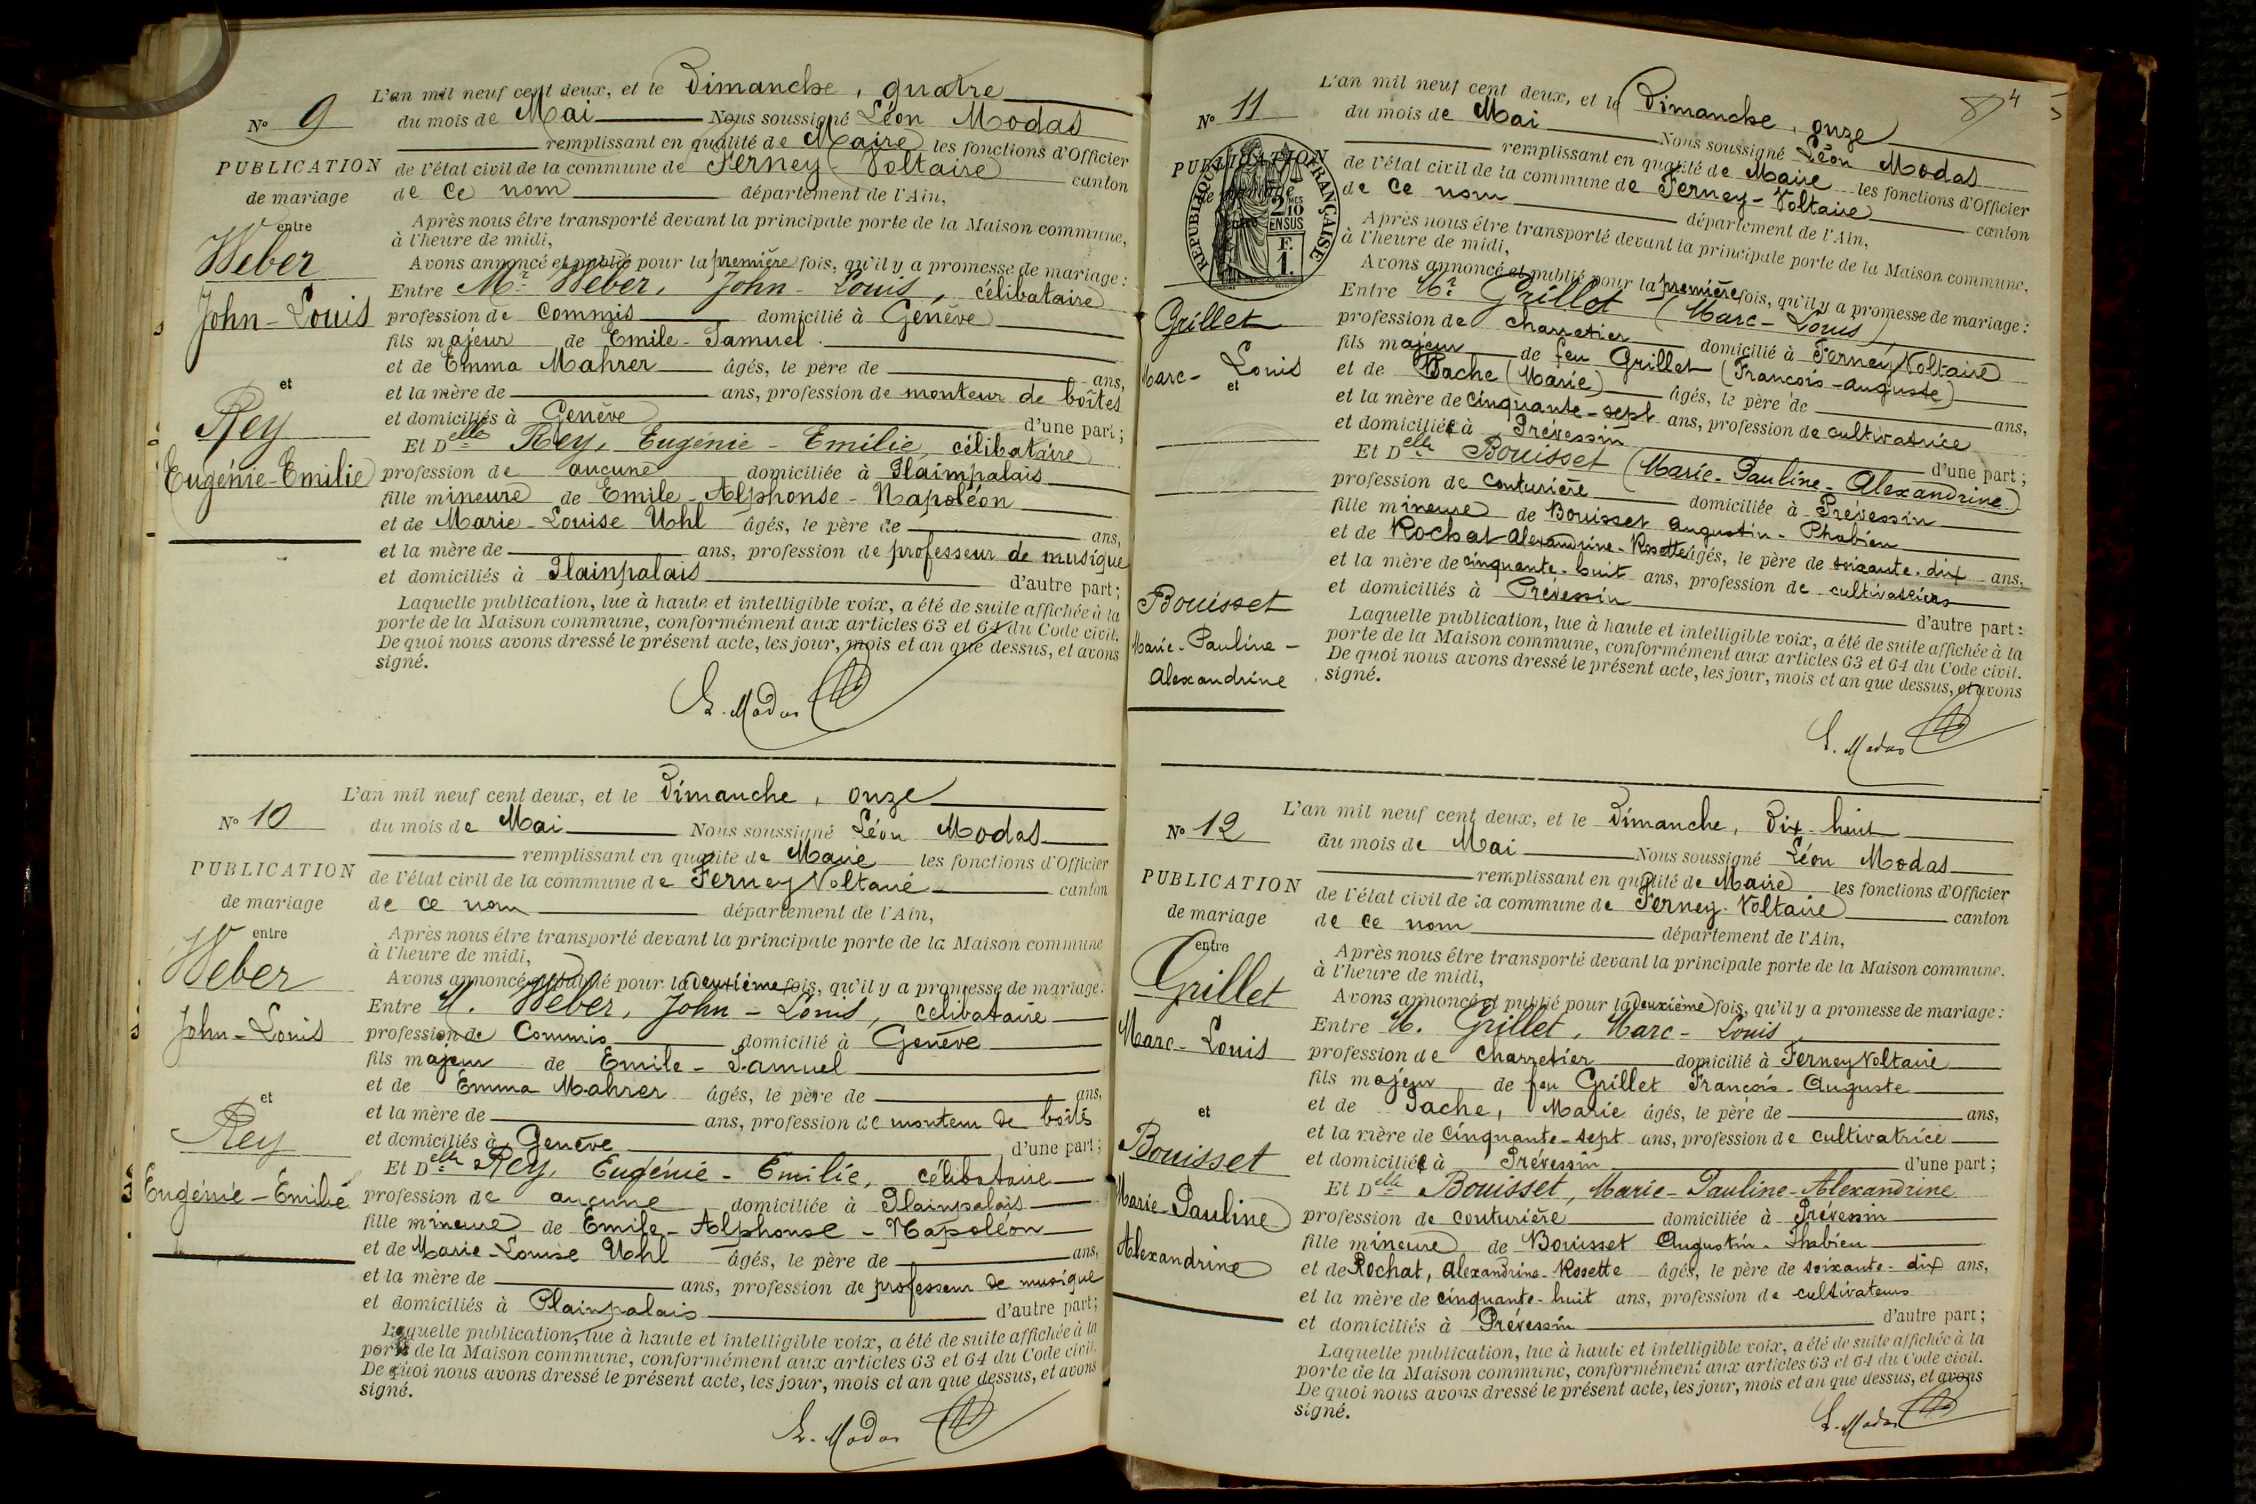 L'an mil neuf cent deux, et le Dimanche, quatre
N° 9
du mois de Mai Nous soussigné Léon Modas
remplissant en qualité de Maire les fonctions d'Officier
PUBLICATION
de l'état civil de la commune de Ferney Voltaire canton
de mariage
de ce nom département de l'Ain,
entre
Après nous être transporté devant la principale porte de la Maison commune,
à l'heure de midi,
Weber
Avons annoncé et publié pour la première fois, qu'il y a promesse de mariage :
Entre Mr Weber, John-Louis, célibataire
John-Louis
profession de Commis domicilié à Genève
fils majeur de Emile-Samuel
et de Emma Mahrer âgés, le père de ans,
et
et la mère de ans, profession de monteur de boîtes
Rey
et domiciliés à Genève d'une part ;
Et Delle Rey, Eugénie-Emilie, célibataire
Eugénie-Emilie
profession de aucune domiciliée à Plainpalais
fille mineure de Emile-Alphonse-Napoléon
et de Marie-Louise Uhl âgés, le père de ans,
et la mère de ans, profession de professeur de musique
et domiciliés à Plainpalais d'autre part ;
Laquelle publication, lue à haute et intelligible voix, a été de suite affichée à la
porte de la Maison commune, conformément aux articles 63 et 64 du Code civil.
De quoi nous avons dressé le présent acte, les jour, mois et an que dessus, et avons
signé.
L. Modas
L'an mil neuf cent deux, et le Dimanche, onze
N° 10
du mois de Mai Nous soussigné Léon Modas
remplissant en qualité de Maire les fonctions d'Officier
PUBLICATION
de l'état civil de la commune de Ferney Voltaire canton
de mariage
de ce nom département de l'Ain,
entre
Après nous être transporté devant la principale porte de la Maison commune
à l'heure de midi,
Weber
Avons annoncé et publié pour la deuxième fois, qu'il y a promesse de mariage.
Entre M. Weber, John-Louis, célibataire
John-Louis
profession de Commis domicilié à Genève
fils majeur de Emile-Samuel
et de Emma Mahrer âgés, le père de ans,
et
et la mère de ans, profession de monteur de boîtes
Rey
et domiciliés à Genève d'une part ;
Et Delle Rey, Eugénie-Emilie, célibataire
Eugénie-Emilie
profession de aucune domiciliée à Plainpalais
fille mineure de Emile-Alphonse-Napoléon
et de Marie-Louise Uhl âgés, le père de ans,
et la mère de ans, profession de professeur de musique
et domiciliés à Plainpalais d'autre part ;
Laquelle publication, lue à haute et intelligible voix, a été de suite affichée à la
porte de la Maison commune, conformément aux articles 63 et 64 du Code civil.
De quoi nous avons dressé le présent acte, les jour, mois et an que dessus, et avons
signé.
L. Modas
4
L'an mil neuf cent deux, et le Dimanche, onze
N° 11
du mois de Mai Nous soussigné Léon Modas
remplissant en qualité de Maire les fonctions d'Officier
PUBLICATION
de l'état civil de la commune de Ferney-Voltaire canton
de mariage
de ce nom département de l'Ain,
entre
RÉPUBLIQUE FRANÇAISE
2 MES
10
EN SUS
F.
1.
Après nous être transporté devant la principale porte de la Maison commune.
à l'heure de midi,
Avons annoncé et publié pour la première fois, qu'il y a promesse de mariage :
Entre Mr Grillet (Marc-Louis)
Grillet
profession de charretier domicilié à Ferney Voltaire
fils majeur de feu Grillet (François-Auguste)
Marc-Louis
et de Pache (Marie) âgés, le père de ans,
et
et la mère de cinquante-sept ans, profession de cultivatrice
et domiciliée à Prévessin d'une part ;
Et Delle Bouisset (Marie-Pauline-Alexandrine)
profession de couturière domiciliée à Prévessin
fille mineure de Bouisset Augustin-Phabien
et de Rochat Alexandrine-Rosette âgés, le père de soixante-dix ans,
et la mère de cinquante-huit ans, profession de cultivateurs
et domiciliés à Prévessin d'autre part :
Bouisset
Marie-Pauline-
Alexandrine
Laquelle publication, lue à haute et intelligible voix, a été de suite affichée à la
porte de la Maison commune, conformément aux articles 63 et 64 du Code civil.
De quoi nous avons dressé le présent acte, les jour, mois et an que dessus, et avons
signé.
L. Modas
L'an mil neuf cent deux, et le Dimanche, Dix-huit
N° 12
du mois de Mai Nous soussigné Léon Modas
remplissant en qualité de Maire les fonctions d'Officier
PUBLICATION
de l'état civil de la commune de Ferney-Voltaire canton
de mariage
de ce nom département de l'Ain,
entre
Après nous être transporté devant la principale porte de la Maison commune.
à l'heure de midi,
Grillet
Avons annoncé et publié pour la deuxième fois, qu'il y a promesse de mariage :
Entre M. Grillet, Marc-Louis
Marc-Louis
profession de charretier domicilié à Ferney Voltaire
fils majeur de feu Grillet François-Auguste
et de Pache, Marie âgés, le père de ans,
et
et la mère de cinquante-sept ans, profession de cultivatrice
Bouisset
et domiciliée à Prévessin d'une part ;
Et Delle Bouisset, Marie-Pauline-Alexandrine
Marie-Pauline
profession de couturière domiciliée à Prévessin
fille mineure de Bouisset Augustin-Phabien
Alexandrine
et de Rochat, Alexandrine-Rosette âgés, le père de soixante-dix ans,
et la mère de cinquante-huit ans, profession de cultivateurs
et domiciliés à Prévessin d'autre part ;
Laquelle publication, lue à haute et intelligible voix, a été de suite affichée à la
porte de la Maison commune, conformément aux articles 63 et 64 du Code civil.
De quoi nous avons dressé le présent acte, les jour, mois et an que dessus, et avons
signé.
L. Modas